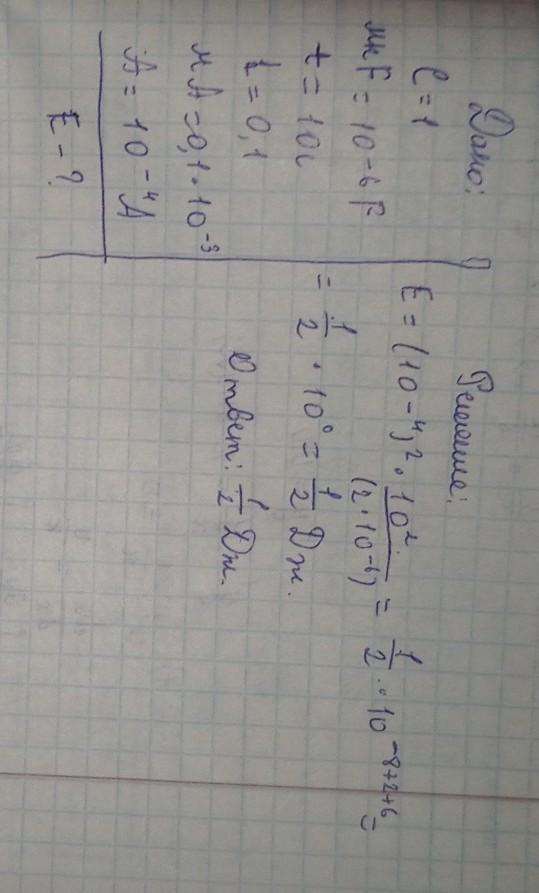 Дано:
C = 1
мк F = 10⁻⁶ F
t = 10с
I = 0,1
м A = 0,1 · 10⁻³
A = 10⁻⁴ A
E - ?
Решение:
E = (10⁻⁴)² · 10² / (2 · 10⁻⁶) = 1/2 · 10⁻⁸⁺²⁺⁶ =
= 1/2 · 10⁰ = 1/2 Дж.
Ответ: 1/2 Дж.